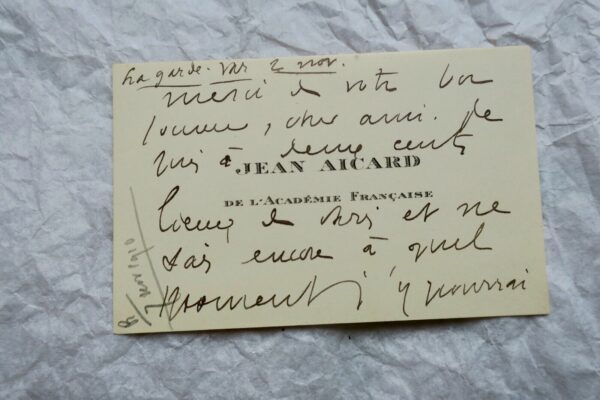 La garde. Var 2 nov.
merci de votre bon
, cher ami. Je
suis à deux cents
JEAN AICARD
DE L'ACADÉMIE FRANÇAISE
lieues de Paris et ne
sais encore à quel
moment j'y pourrai
2 nov 1910